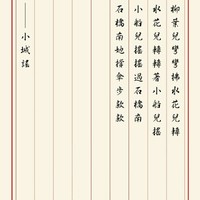 柳葉兒彎彎拂水花兒轉
水花兒轉轉著小船兒搖
小船兒搖搖過石橋南
石橋南她撐傘步款款
——小城謠